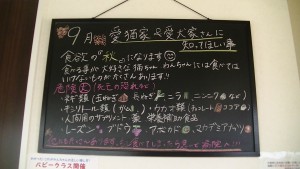 9月 愛猫家&愛犬家さんに
知ってほしい事
食欲の"秋"になります
食べる事が大好きな猫ちゃん、わんちゃんには食べては
いけないものがたくさんあります!!
危険 大
・ネギ類(玉ねぎ 長ねぎ ニラ ニンニクなど)
・キシリトール類(ガム) ・カカオ類(チョコレート ココア)
・人間用のサプリメント 薬 栄養補助食品
・レーズン ブドウ ・アボカド ・マカダミアナッツ
ベビークラス開催